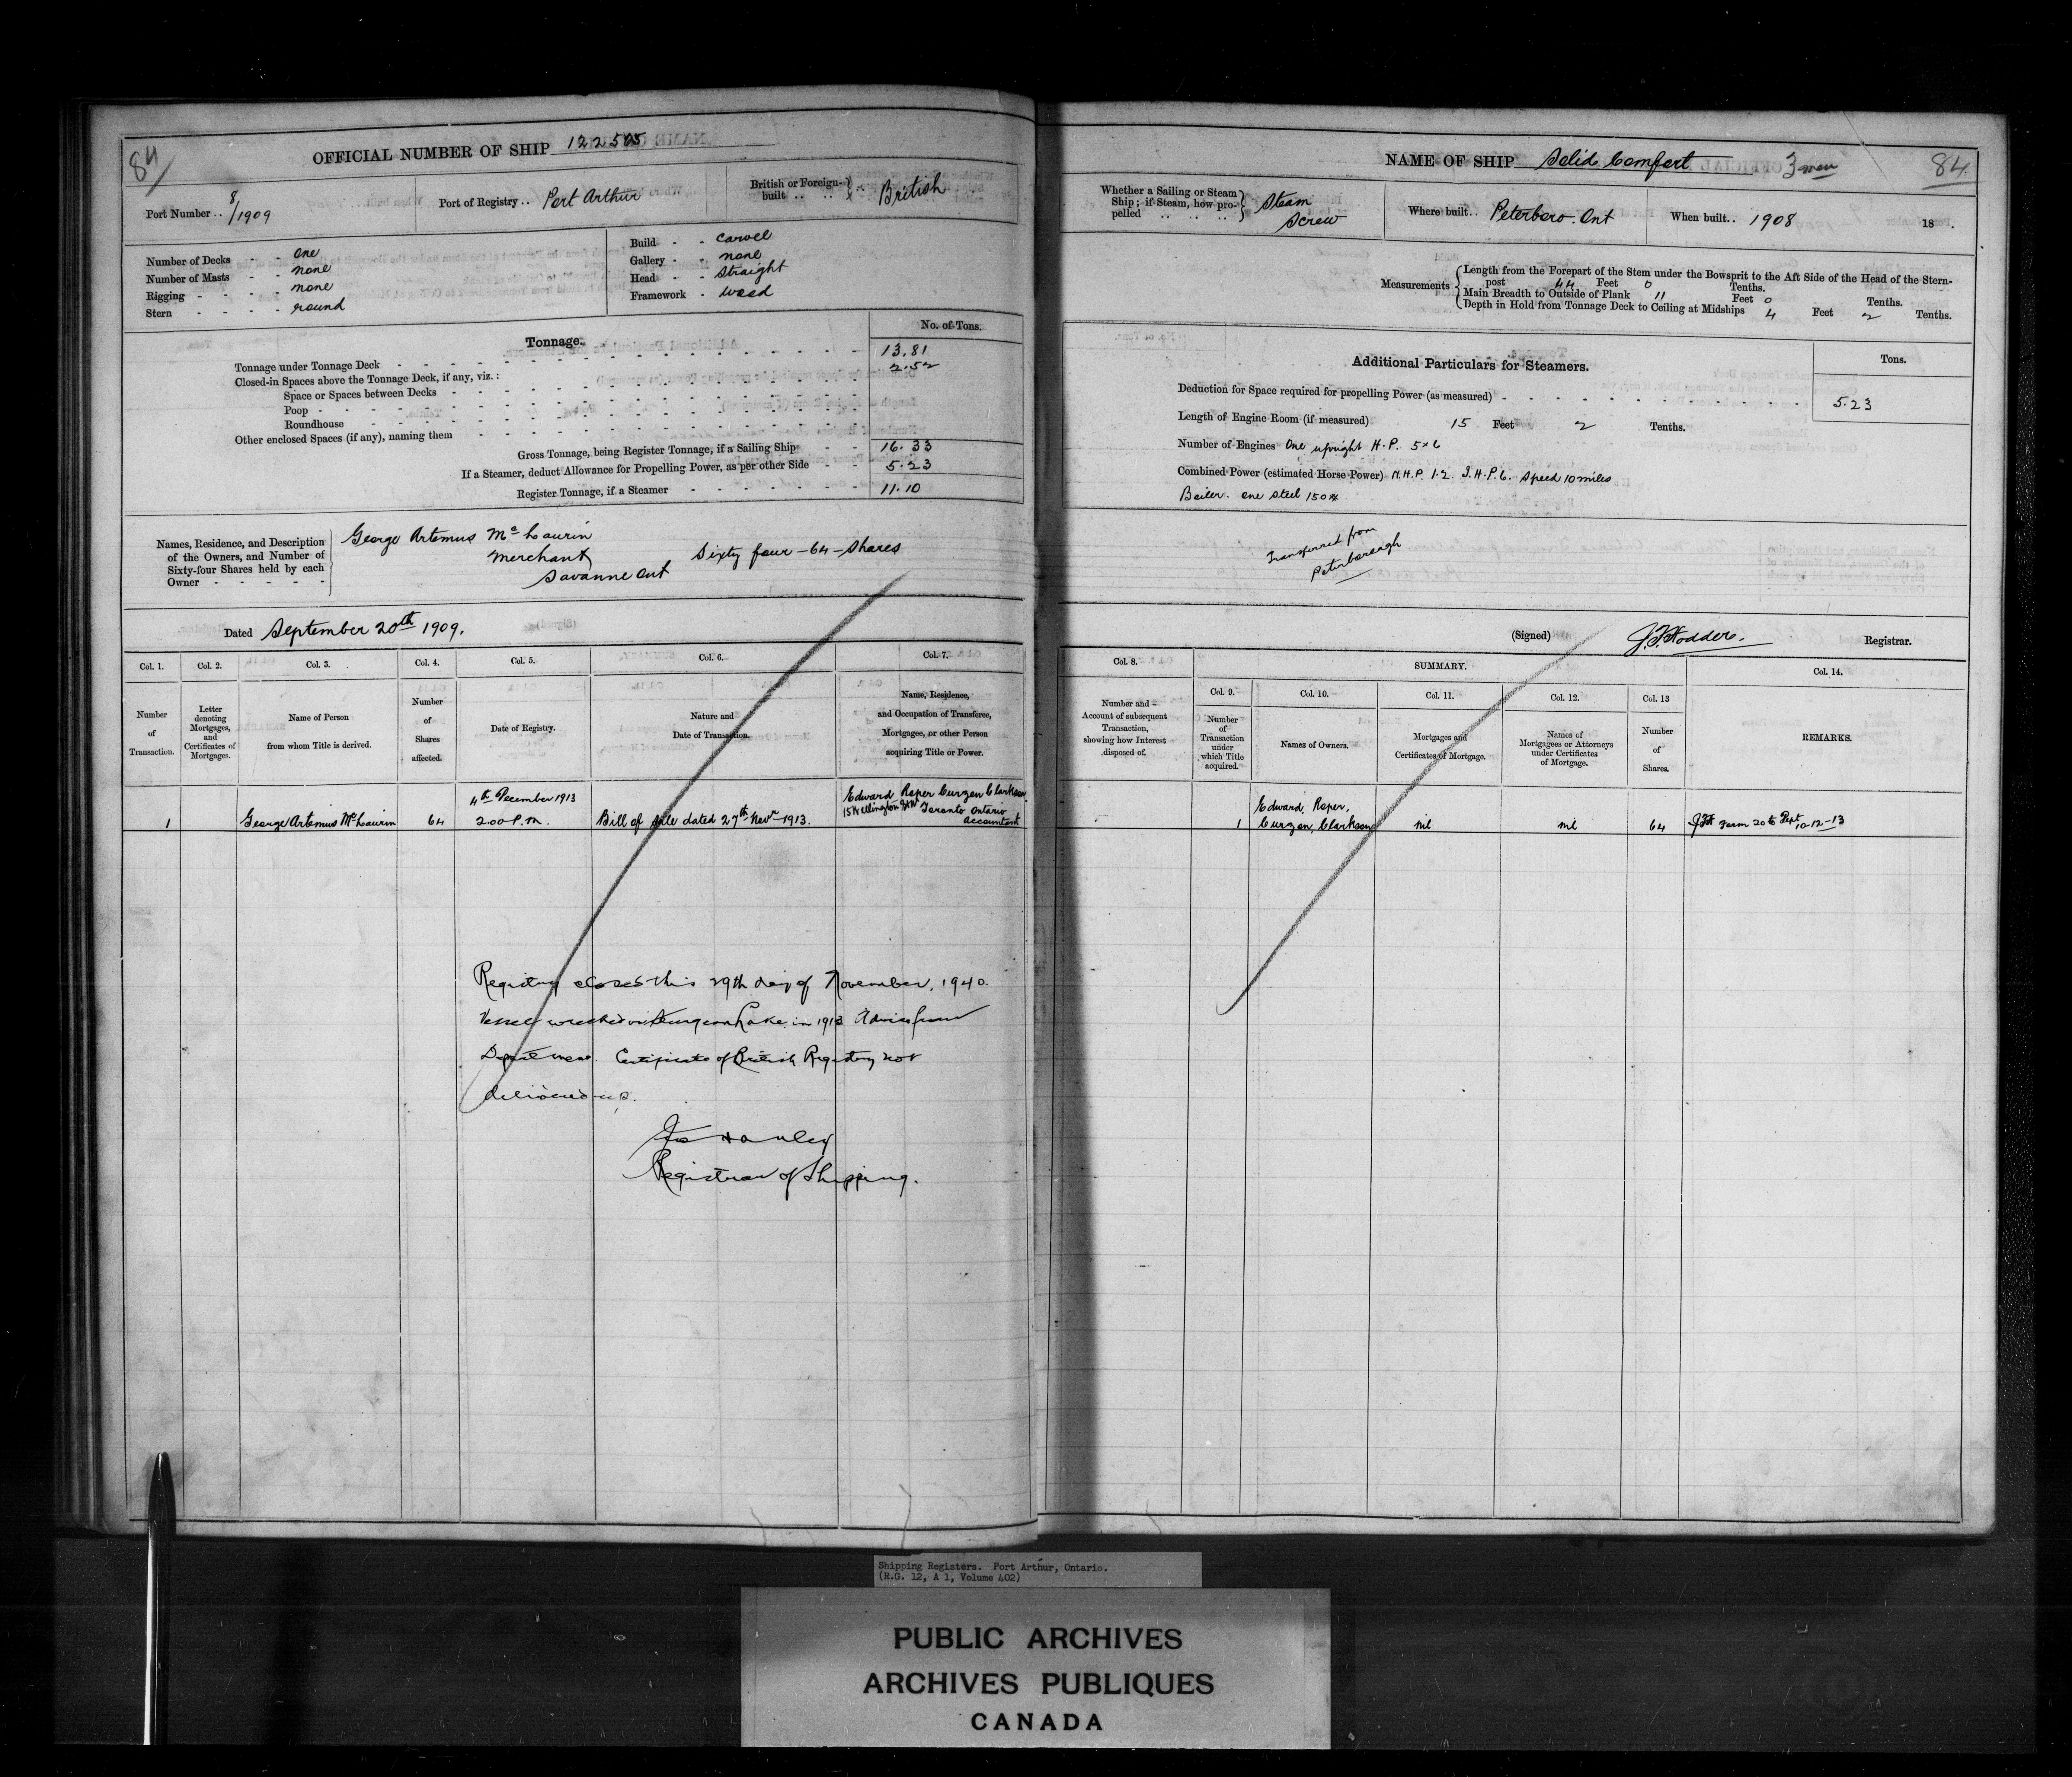 84
OFFICIAL NUMBER OF SHIP 122505
Port Number .. 8/1909
Port of Registry .. Port Arthur
British or Foreign-built .. .. } .. British
Number of Decks - - one
Number of Masts - - none
Rigging - - - - none
Stern - - - - round
Build - - carvel
Gallery - - none
Head - - straight
Framework - wood
Tonnage.
No. of Tons.
Tonnage under Tonnage Deck 13.81
Closed-in Spaces above the Tonnage Deck, if any, viz.: 2.52
Space or Spaces between Decks
Poop
Roundhouse
Other enclosed Spaces (if any), naming them
Gross Tonnage, being Register Tonnage, if a Sailing Ship - - 16.33
If a Steamer, deduct Allowance for Propelling Power, as per other Side - - 5.23
Register Tonnage, if a Steamer 11.10
Names, Residence, and Description
of the Owners, and Number of
Sixty-four Shares held by each
Owner - - - - -
George Artemus McLaurin
Merchant
Savanne Ont
Sixty four - 64 - shares
Dated September 20th 1909.
Col. 1. Col. 2. Col. 3. Col. 4. Col. 5. Col. 6. Col. 7.
Number of Transaction.
Letter denoting Mortgages, and Certificates of Mortgages.
Name of Person from whom Title is derived.
Number of Shares affected.
Date of Registry.
Nature and Date of Transaction.
Name, Residence, and Occupation of Transferee, Mortgagee, or other Person acquiring Title or Power.
1
George Artemus McLaurin
64
4th December 1913
2.00 P.M.
Bill of sale dated 27th Novr 1913.
Edward Roper Curzon Clarkson
15 Wellington St W Toronto Ontario
accountant
Registry closed this 29th day of November, 1940.
Vessel wrecked on Sturgeon Lake in 1913 Advice from
Department. Certificate of British Registry not
delivered up.
Hanley
Registrar of Shipping.
NAME OF SHIP Solid Comfort
3 men
84
Whether a Sailing or Steam
Ship; if Steam, how pro-
pelled .. .. .. ..
Steam
Screw
Where built .. Peterboro. Ont
When built .. 1908
18 .
Measurements
Length from the Forepart of the Stem under the Bowsprit to the Aft Side of the Head of the Stern-
post 44 Feet 0 Tenths.
Main Breadth to Outside of Plank 11 Feet 0 Tenths.
Depth in Hold from Tonnage Deck to Ceiling at Midships 4 Feet 2 Tenths.
Additional Particulars for Steamers.
Tons.
Deduction for Space required for propelling Power (as measured) 5.23
Length of Engine Room (if measured) 15 Feet 2 Tenths.
Number of Engines One upright H.P. 5 x 6
Combined Power (estimated Horse Power) N.H.P. 1.2. I.H.P. 6. Speed 10 miles
Boiler. one steel 150#
Transferred from
Peterborough
(Signed) J.F. Hodder. Registrar.
Col. 8.
SUMMARY.
Col. 14.
Col. 9. Col. 10. Col. 11. Col. 12. Col. 13
Number and Account of subsequent Transaction, showing how Interest disposed of.
Number of Transaction under which Title acquired.
Names of Owners.
Mortgages and Certificates of Mortgage.
Names of Mortgagees or Attorneys under Certificates of Mortgage.
Number of Shares.
REMARKS.
1
Edward, Roper,
Curzon, Clarkson
nil
nil
64
Form 20 to Dept 10-12-13
Shipping Registers. Port Arthur, Ontario.
(R.G. 12, A 1, Volume 402)
PUBLIC ARCHIVES
ARCHIVES PUBLIQUES
CANADA